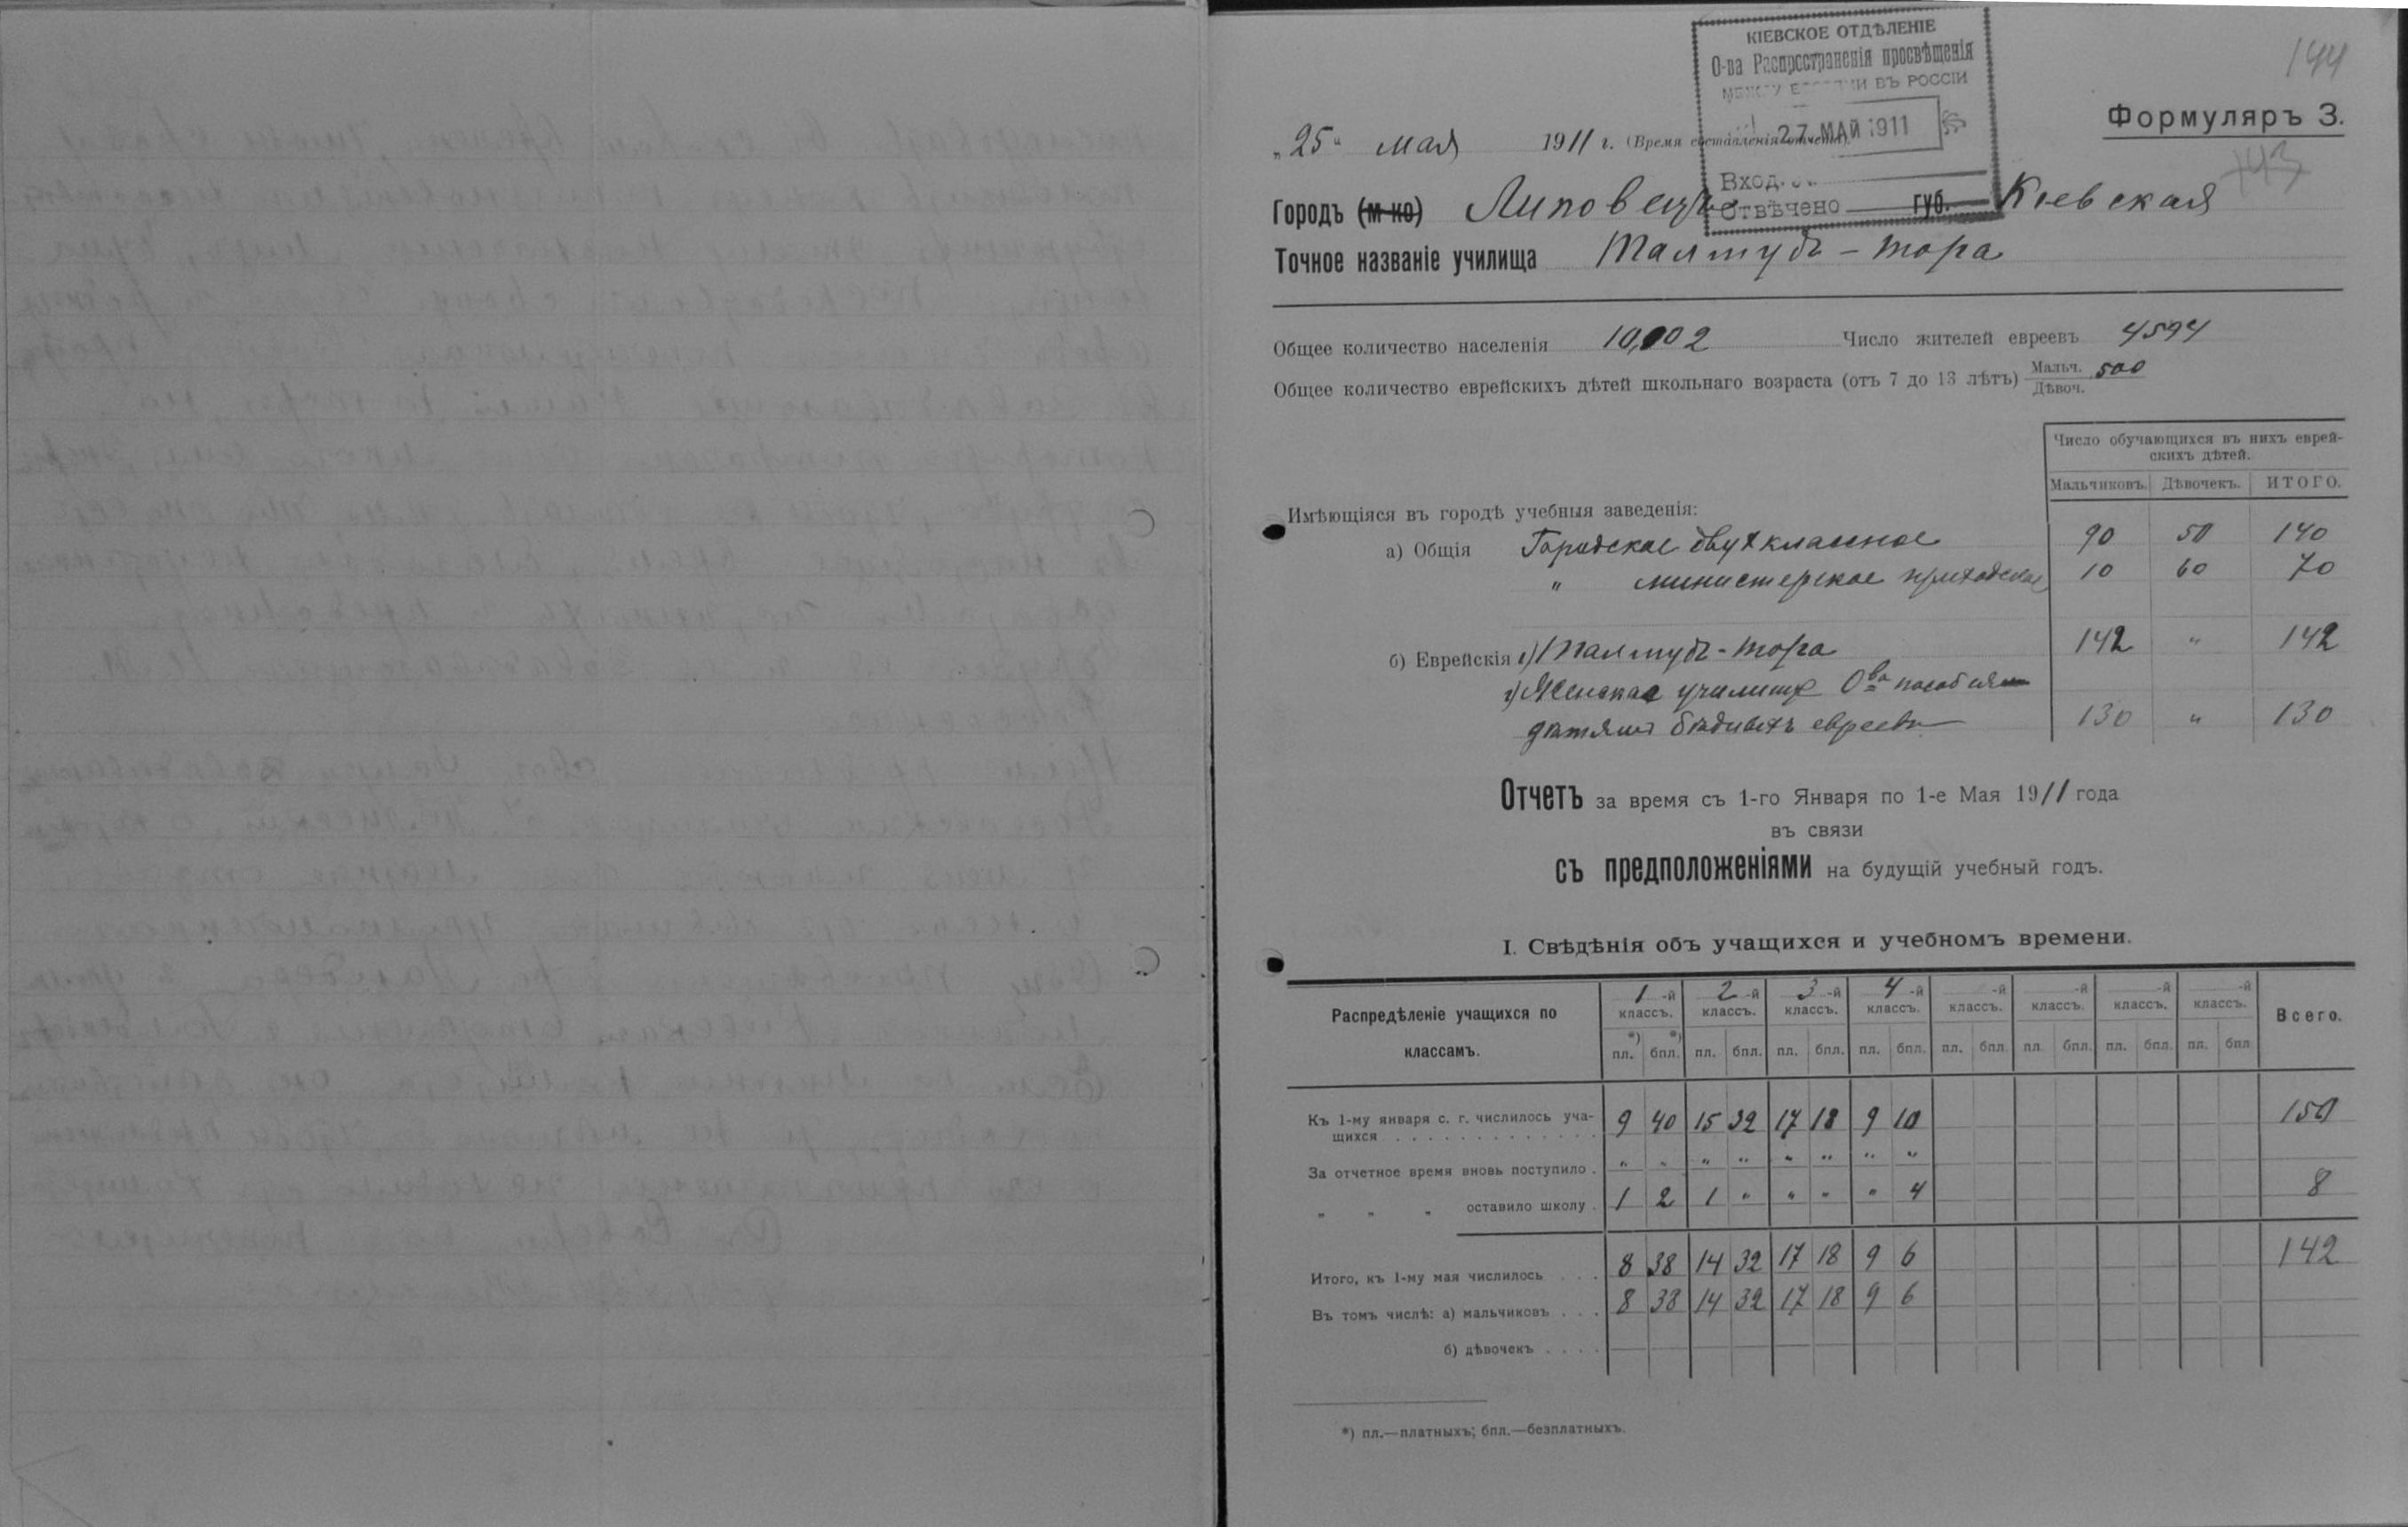 144
КІЕВСКОЕ ОТДѢЛЕНІЕ
О-ва Распространенія просвѣщенія
МЕЖДУ ЕВРЕЯМИ ВЪ РОССІИ
27 МАЙ 1911
Вход.
Отвѣчено
Формуляръ 3.
143
„25“ мая 1911 г. (Время составленія отчета).
Городъ (м-ко) Липовецъ губ. Кіевская
Точное названіе училища Талмудъ-тора
Общее количество населенія 10,002 Число жителей евреевъ 4594
Общее количество еврейскихъ дѣтей школьнаго возраста (отъ 7 до 13 лѣтъ) Мальч. Дѣвоч. 500
Число обучающихся въ нихъ еврей-
скихъ дѣтей.
Мальчиковъ. Дѣвочекъ. ИТОГО.
Имѣющіяся въ городѣ учебныя заведенія:
а) Общія Городское двухклассное 90 50 140
" министерское приходское 10 60 70
б) Еврейскія 1) Талмудъ-тора 142 " 142
2) Женское училище О-ва пособія
дѣтямъ бѣдныхъ евреевъ 130 " 130
Отчетъ за время съ 1-го Января по 1-е Мая 1911 года
въ связи
съ предположеніями на будущій учебный годъ.
I. Свѣдѣнія объ учащихся и учебномъ времени.
Распредѣленіе учащихся по классамъ. 1-й классъ. 2-й классъ. 3-й классъ. 4-й классъ. -й классъ. -й классъ. -й классъ. -й классъ. Всего.
*) пл. *) бпл. пл. бпл. пл. бпл. пл. бпл. пл. бпл. пл. бпл. пл. бпл. пл. бпл.
Къ 1-му января с. г. числилось уча-
щихся 9 40 15 32 17 18 9 10 150
За отчетное время вновь поступило . " " " " " " " "
" " " оставило школу . 1 2 1 " " " " 4 8
Итого, къ 1-му мая числилось . . . 8 38 14 32 17 18 9 6 142
Въ томъ числѣ: а) мальчиковъ . . . 8 38 14 32 17 18 9 6
б) дѣвочекъ . . . .
*) пл.—платныхъ; бпл.—безплатныхъ.